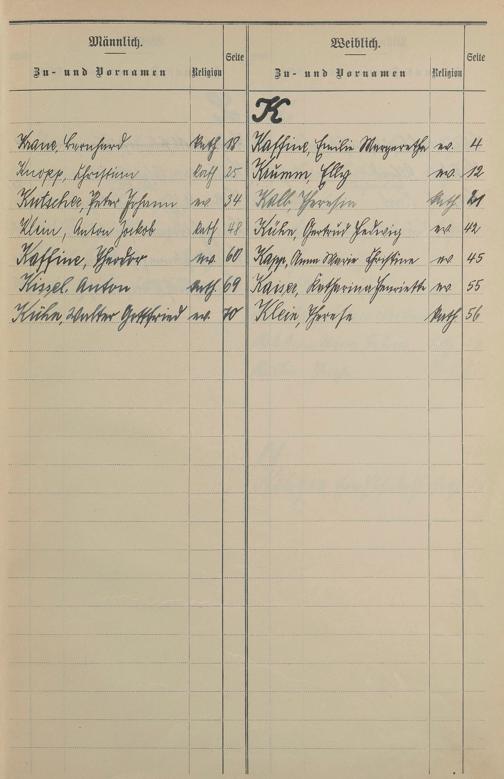 Männlich.
Zu- und Vornamen Religion Seite
Kranz, Bernhard kath 18
Knopp, Christian kath 25
Kutscher, Peter Johann ev 34
Klein, Anton Jakob kath 48
Kaffine, Theodor ev. 60
Kissel, Anton kath 69
Kühn, Walter Gottfried ev. 70
Weiblich.
Zu- und Vornamen Religion Seite
K
Kaffine, Emilie Margarethe ev. 4
Krumm, Elly ev. 12
Kalb Theresia kath 21
Kühn Gertrud Hedwig ev 42
Kapp, Anna Maria Christine ev 45
Kaiser, Katharina Henriette ev 55
Klein, Therese kath 56